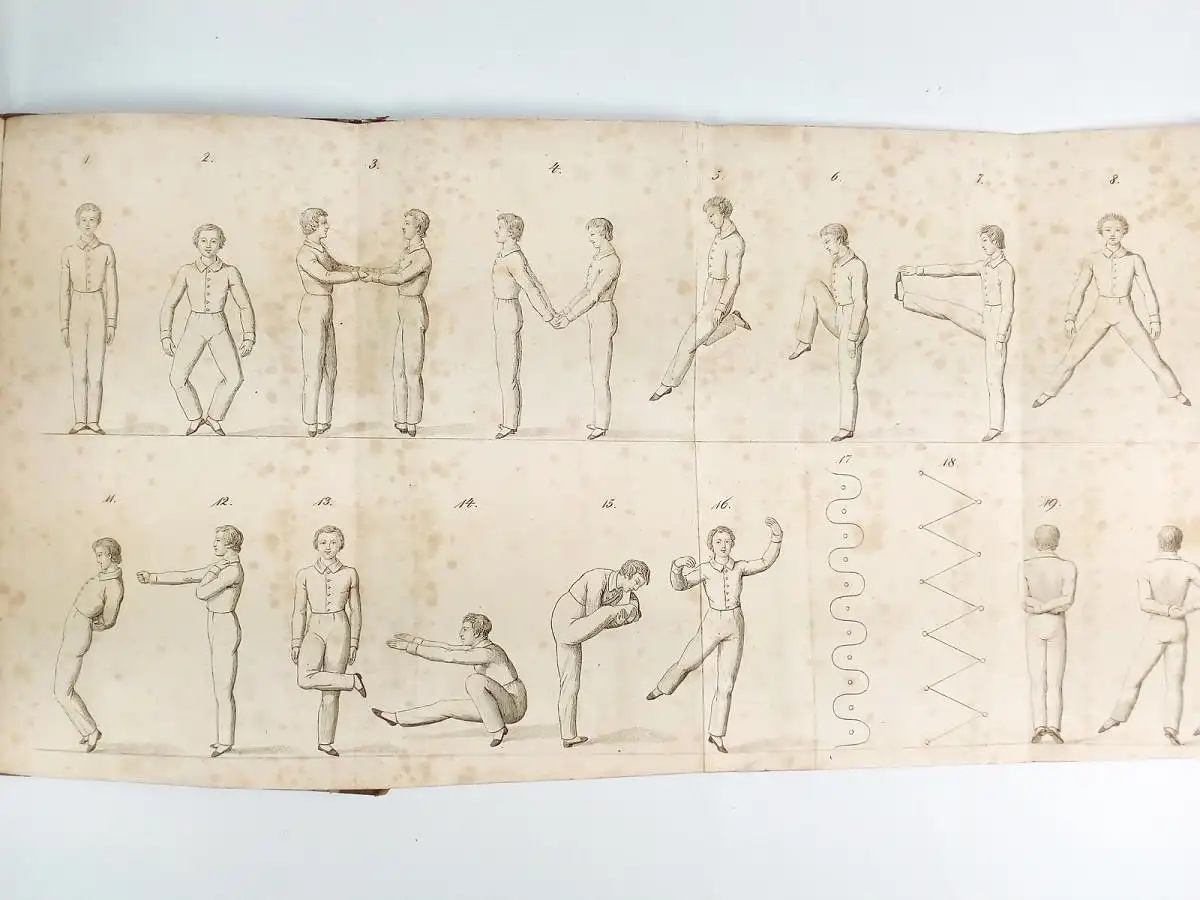 1
2.
3.
4.
5.
6.
7.
8.
11.
12.
13.
14.
15.
16.
17
18.
19.